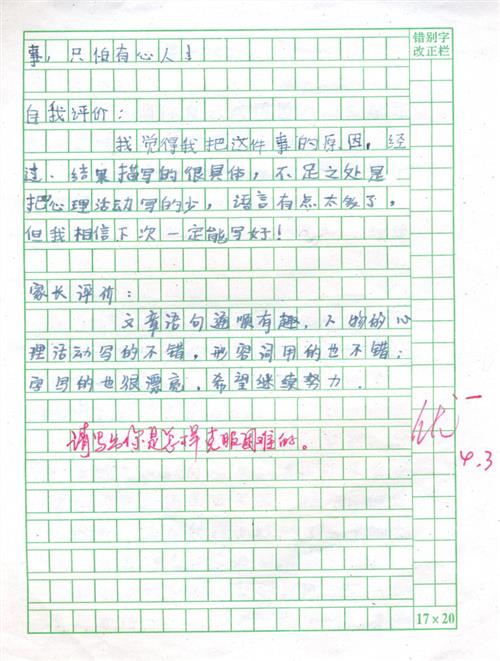 错别字
改正栏
事,只怕有心人!
自我评价:
我觉得我把这件事的原因,经
过、结果描写的很具体,不足之处是
把心理活动写的少,语言有点太多了,
但我相信下次一定能写好!
家长评价:
文章语句通顺有趣,人物的心
理活动写的不错,形容词用的也不错;
字写的也很漂亮,希望继续努力.
请写出你是怎样克服困难的。
优-
4.3
17×20